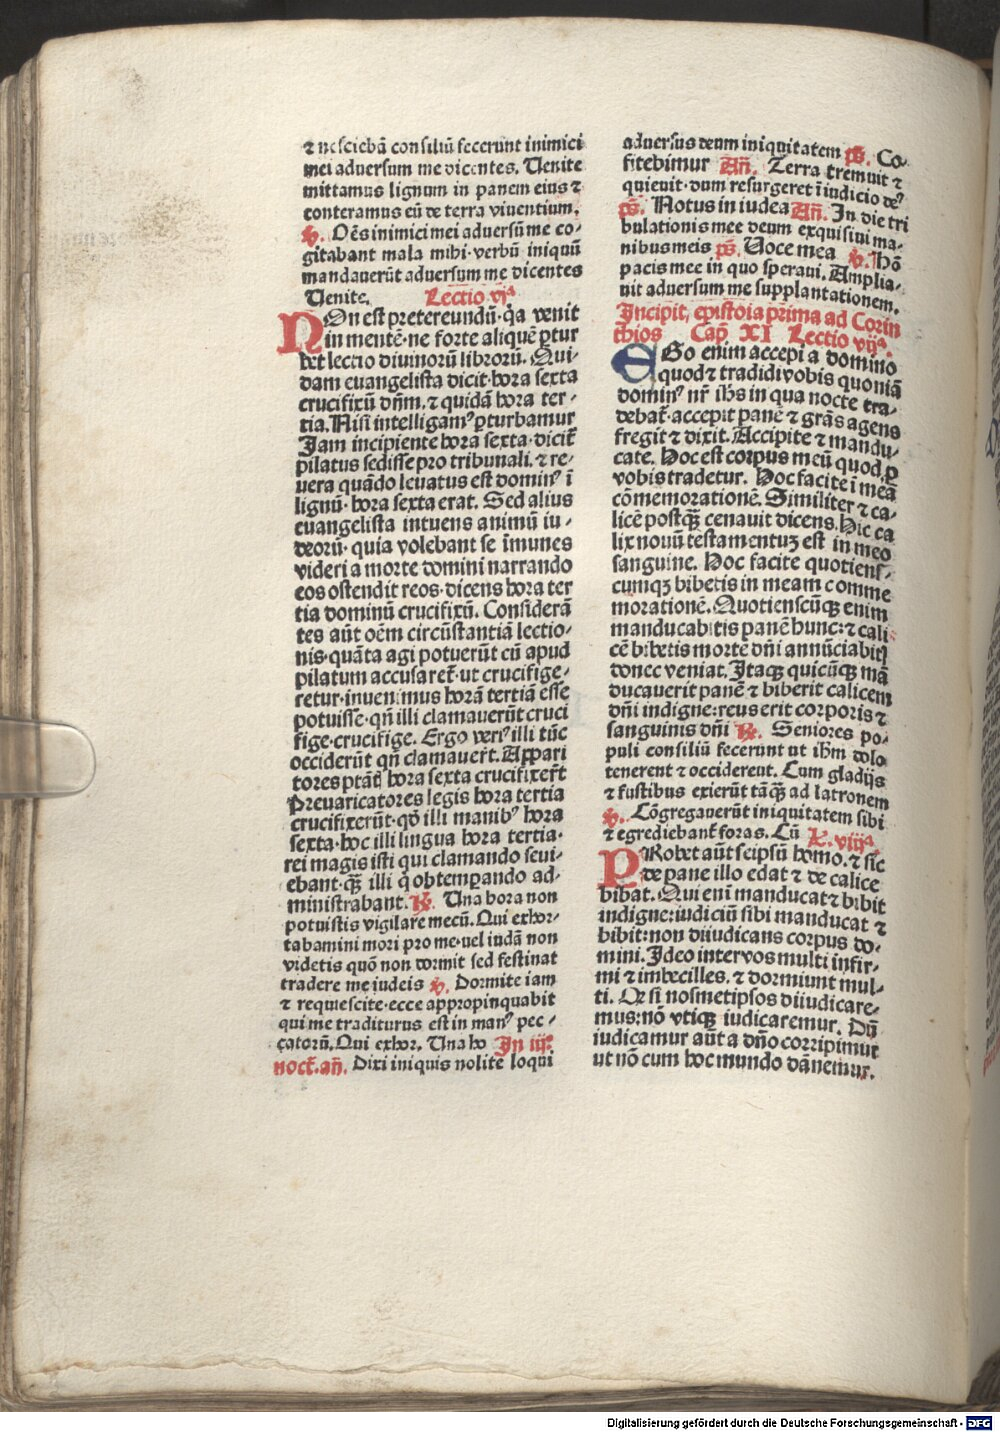 ⁊ nesciebā consiliū fecerunt inimici
mei aduersum me dicentes. Uenite
mittamus lignum in panem eius ⁊
conteramus eū de terra viuentium.
℣. Oēs inimici mei aduersū me co-
gitabant mala mihi· verbū iniquū
mandauerūt aduersum me dicentes
Uenite. Lectio vjᵃ
NOn est pretereundū· q̇a venit
in mentē· ne forte aliquē ꝑtur
bet lectio diuinorū librorū. Qui-
dam euangelista dicit· hora sexta
crucifixū dn̄m. ⁊ quidā hora ter-
tia. Nisi intelligamꝰ ꝑturbamur
Jam incipiente hora sexta· dicit̄
pilatus sedisse pro tribunali. ⁊ re-
uera quādo leuatus est dominꝰ ī
lignū· hora sexta erat. Sed alius
euangelista intuens animū iu-
deorū· quia volebant se īmunes
videri a morte domini narrando
eos ostendit reos· dicens hora ter
tia dominū crucifixū. Considerā
tes aūt oēm circūstantiā lectio-
nis· quāta agi potuerūt cū apud
pilatum accusaret̄· ut crucifige-
retur· inuenimus horā tertiā esse
potuisse· qn̄ illi clamauerūt cruci
fige· crucifige. Ergo veriꝰ illi tūc
occiderūt qn̄ clamauer̄t. Appari
tores ptāt̄ꝭ hora sexta crucifixer̄t
Preuaricatores legis hora tertia
crucifixerūt· qd̄ illi manibꝰ hora
sexta· hoc illi lingua hora tertia·
rei magis isti qui clamando seui-
ebant· qꝫ̄ illi q̇ obtemꝑando ad-
ministrabant. ℟. Una hora non
potuistis vigilare mecū. Qui exhor-
tabamini mori pro me· uel iudā non
videtis quō non dormit sed festinat
tradere me iudeis ℣. Dormite iam
⁊ requiescite· ecce appropinquabit
qui me traditurus est in manꝰ pec-
catorū. Qui exhor. Una ho In iijº
noct̄. an̄. Dixi iniquis nolite loqui
aduersus deum iniquitatem p̄s. Co-
fitebimur An̄. Terra tremuit ⁊
quieuit· dum resurgeret ī iudicio deꝰ
p̄s. Notus in iudea An̄. In die tri
bulationis mee deum exquisiui ma-
nibus meis p̄s. Uoce mea ℣. Hō
pacis mee in quo speraui. Amplia-
uit aduersum me supplantationem.
Incipit, epistola prima ad Corin
thios Cap̄ XI Lectio vijᵃ.
EGo enim accepi a domino
quod ⁊ tradidi vobis quoniā
dominꝰ nr̄ ih̄s in qua nocte tra-
debat̄· accepit panē ⁊ grās agens
fregit ⁊ dixit. Accipite ⁊ mandu-
cate. Hoc est corpus meū quod ꝓ
vobis tradetur. Hoc facite ī meā
cōmemorationē. Similiter ⁊ ca-
licē postqꝫ̄ cenauit dicens. Hic ca
lix nouū testamentuꝫ est in meo
sanguine. Hoc facite quotiens-
cumqꝫ bibetis in meam comme
morationē. Quotienscūqꝫ enim
manducabitis panē hunc: ⁊ cali
cē bibetis mortē dn̄i annūciabitꝭ
donec veniat. Itaqꝫ quicūqꝫ mā
ducauerit panē ⁊ biberit calicem
dn̄i indigne: reus erit corporis ⁊
sanguinis dn̄i ℟. Seniores po-
puli consiliū fecerunt ut ih̄m dolo
tenerent ⁊ occiderent. Cum gladijs
⁊ fustibus exierūt tāqꝫ̄ ad latronem
℣. Cōgregauerūt iniquitatem sibi
⁊ egrediebant̄ foras. Cū L. viijᵃ.
PRobet aūt seipsū homo. ⁊ sic
de pane illo edat ⁊ de calice
bibat. Qui eni̅ manducat ⁊ bibit
indigne: iudiciū sibi manducat ⁊
bibit: non diiudicans corpus do-
mini. Ideo inter vos multi infir-
mi ⁊ imbecilles. ⁊ dormiunt mul-
ti. Qꝫ si nosmetipsos diiudicare-
mus: nō vtiqꝫ iudicaremur. Dū
iudicamur aūt a dn̄o corripimur
ut nō cum hoc mundo dānemur.
Digitalisierung gefördert durch die Deutsche Forschungsgemeinschaft - DFG